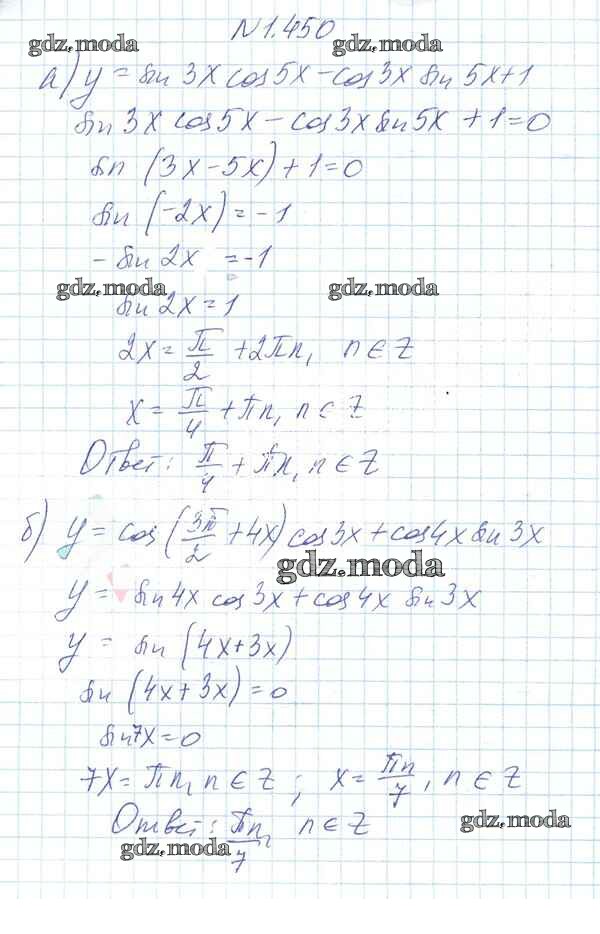 №1.450
gdz.moda gdz.moda
а) y = sin 3x cos 5x - cos 3x sin 5x + 1
sin 3x cos 5x - cos 3x sin 5x + 1 = 0
sin (3x - 5x) + 1 = 0
sin (-2x) = -1
- sin 2x = -1
gdz.moda gdz.moda
sin 2x = 1
2x = π/2 + 2πn, n ∈ Z
x = π/4 + πn, n ∈ Z
Ответ: π/4 + πn, n ∈ Z
б) y = cos (3π/2 + 4x) cos 3x + cos 4x sin 3x
gdz.moda
y = sin 4x cos 3x + cos 4x sin 3x
y = sin (4x + 3x)
sin (4x + 3x) = 0
sin 7x = 0
7x = πn, n ∈ Z ; x = πn/7, n ∈ Z
Ответ: πn/7, n ∈ Z
gdz.moda gdz.moda